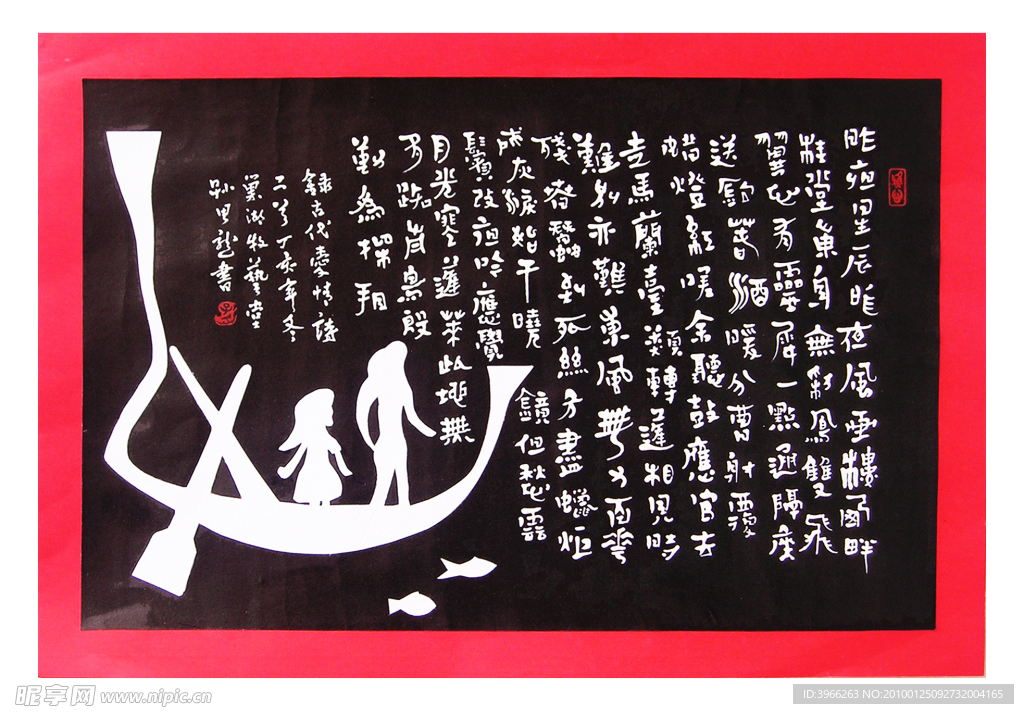 昨夜星辰昨夜風画樓西畔
桂堂東身無彩鳳雙飛
翼心有靈犀一點通隔座
送鉤春酒暖分曹射覆
蜡燈紅嗟余聽鼓應官去
走馬蘭臺類轉蓬相見時
難別亦難東風無力百花
殘春蠶到死絲方盡蠟炬
成灰淚始干曉鏡但愁雲
鬢改夜吟應覺
月光寒蓬萊此地無
多路青鳥殷
勤為探看
錄古代愛情詩
二首丁亥年冬
巢湖牧藝堂
書
昵享网 www.nipic.cn
ID:3966263 NO:20100125092732004165